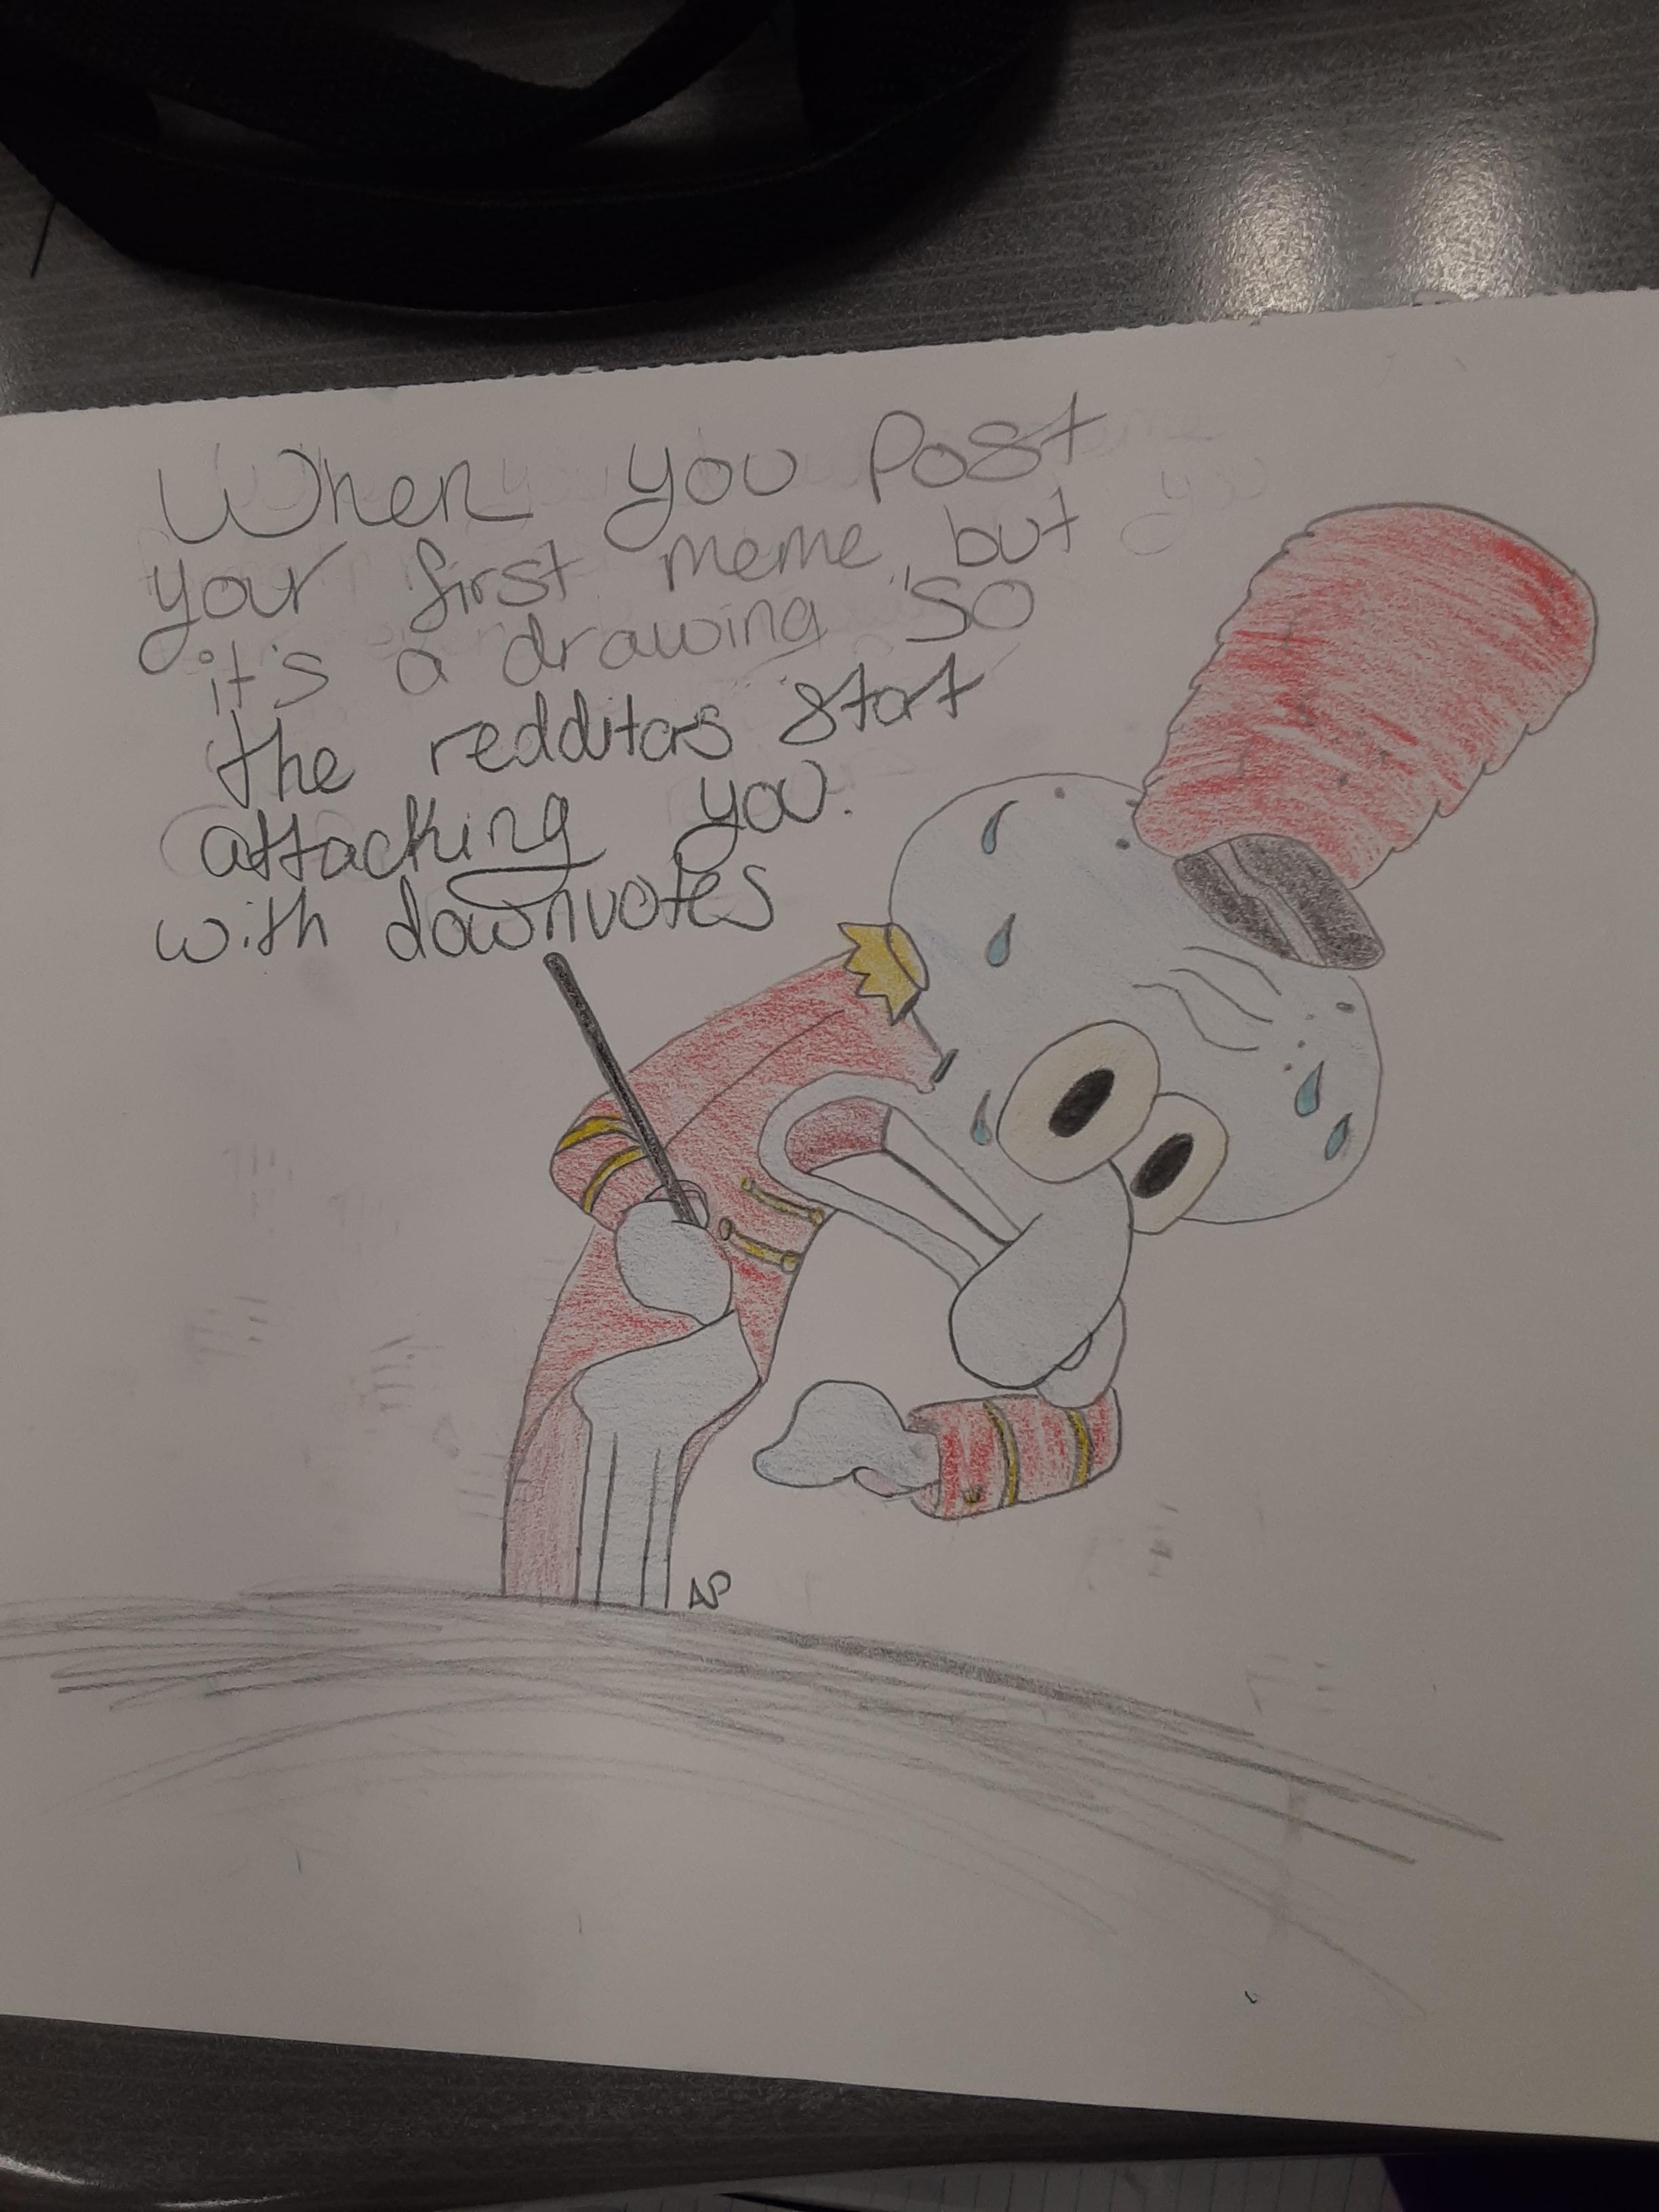 When you Post
your first meme but
it's a drawing so
the redditors start
attacking you.
with downvotes
AP